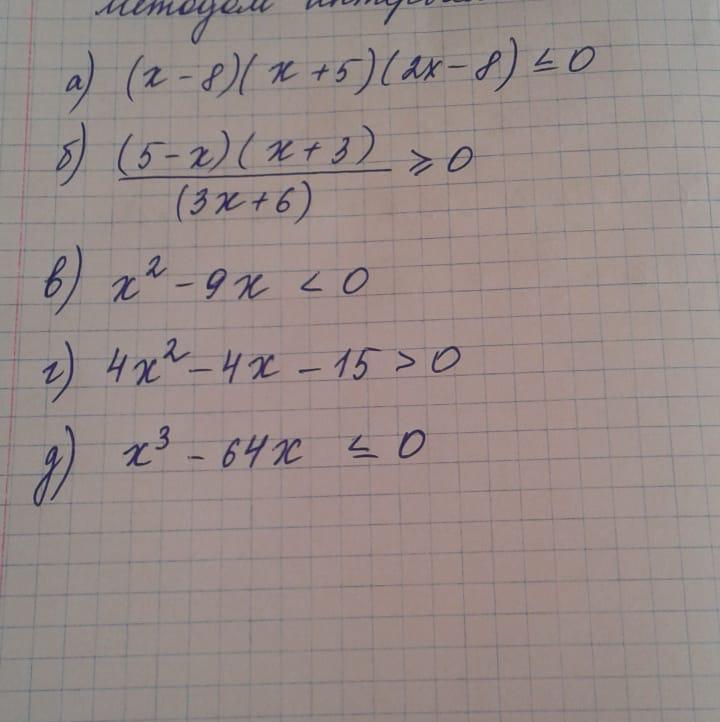 методом
а) (x - 8)(x + 5)(2x - 8) ≤ 0
б) (5 - x)(x + 3)
(3x + 6) ≥ 0
в) x² - 9x < 0
г) 4x² - 4x - 15 > 0
д) x³ - 64x ≤ 0